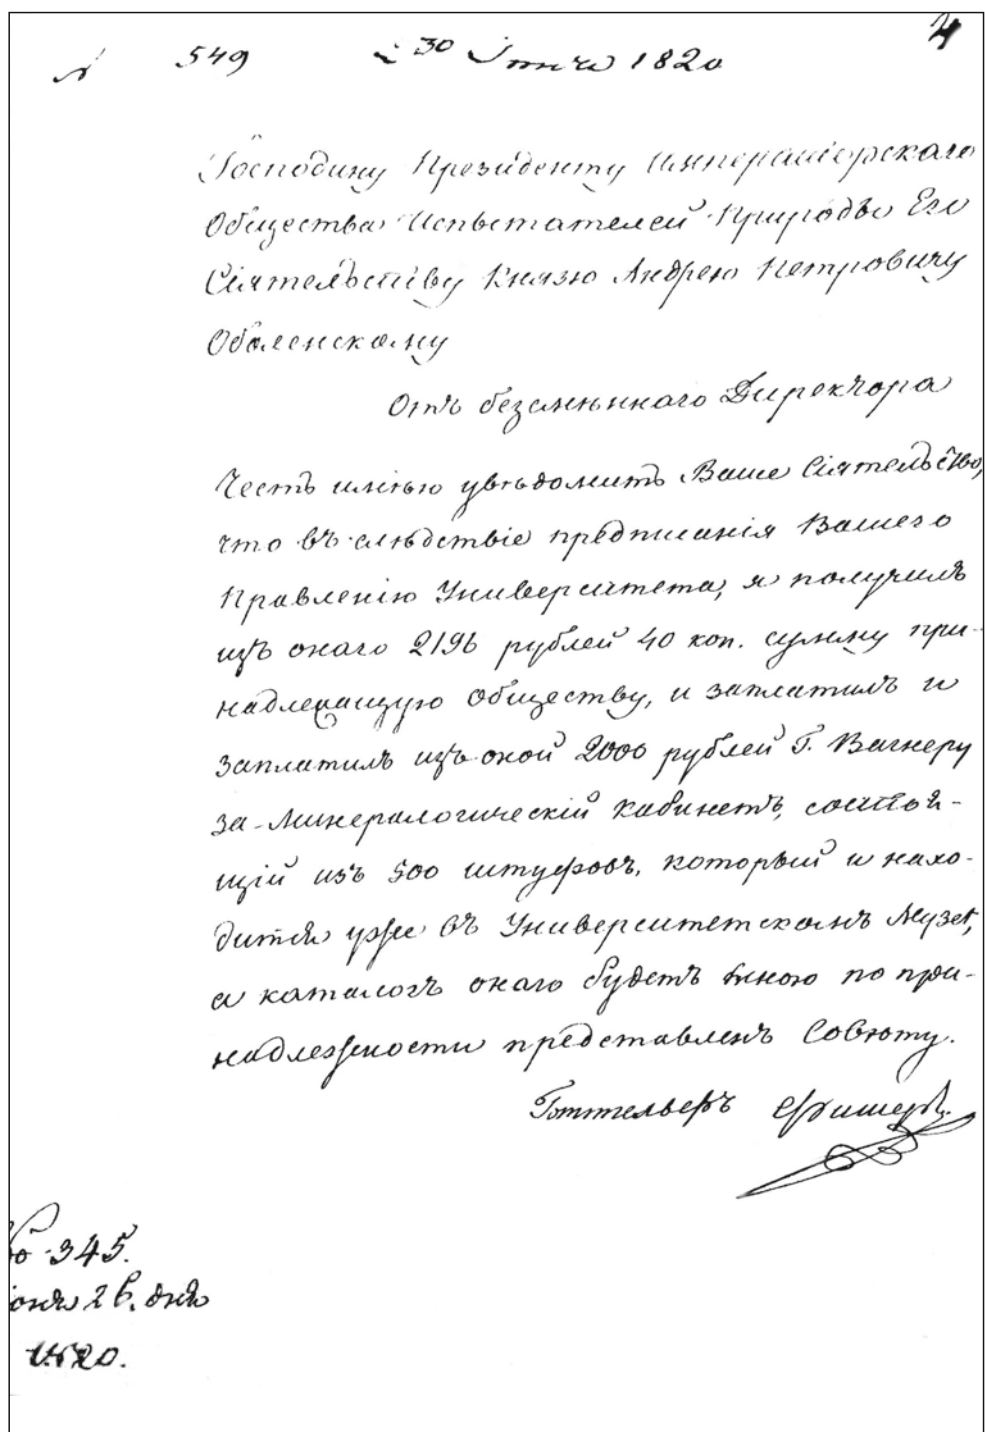 4
№ 549 30 Июня 1820
Господину Президенту Императорскаго
Общества Испытателей Природы Его
Сіятельству Князю Андрею Петровичу
Оболенскому
Отъ безсмѣннаго Директора
Честь имѣю увѣдомить Ваше Сіятельство,
что въ слѣдствіе предписанія Вашего
Правленію Университета, я получилъ
изъ онаго 2196 рублей 40 коп. сумму при-
надлежащую Обществу, и заплатилъ и
заплатилъ изъ оной 2000 рублей Г. Вагнеру
за Минералогическій Кабинетъ, состоя-
щій изъ 500 штуфовъ, который и нахо-
дится уже въ Университетскомъ Музеѣ,
а каталогъ онаго будетъ мною по при-
надлежности представленъ Совѣту.
Готтельфъ Фишеръ.
№ 345.
Іюня 26. дня
1820.